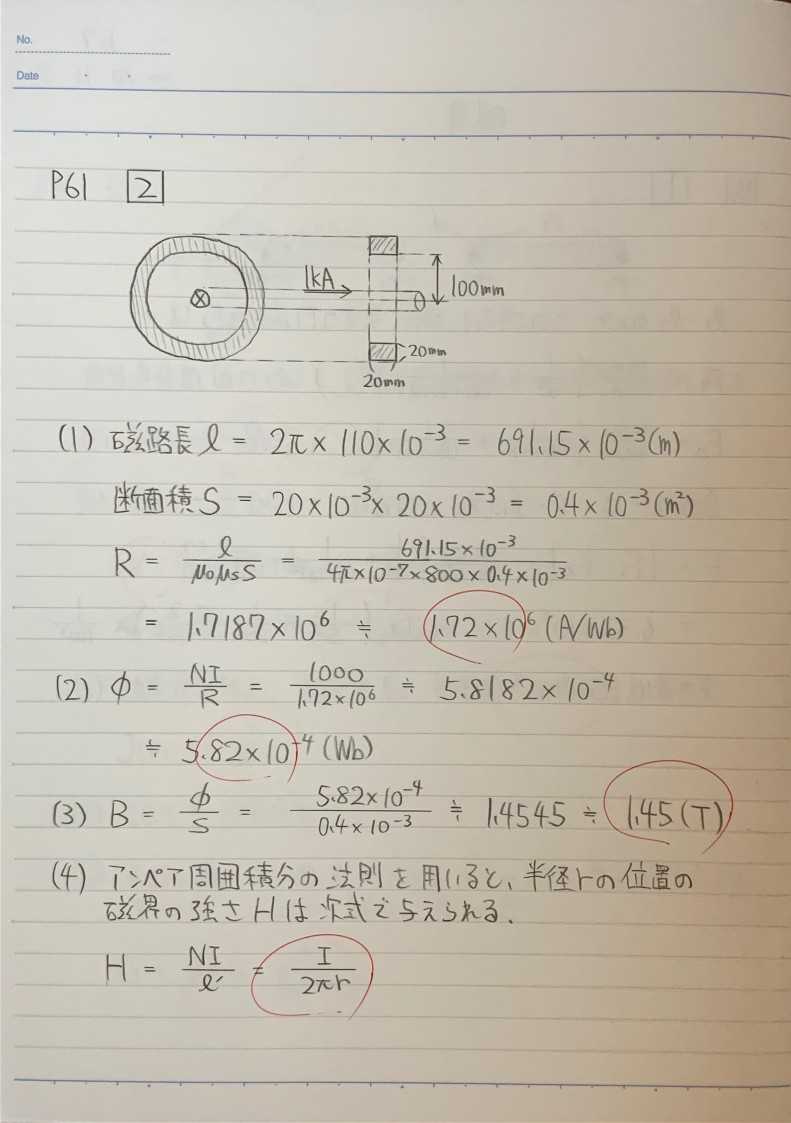 No.
Date
P61 2
1kA
100mm
20mm
20mm
(1) 磁路長 l = 2π×110×10⁻³ = 691.15×10⁻³(m)
断面積 S = 20×10⁻³×20×10⁻³ = 0.4×10⁻³(m²)
R = l/μ₀μsS = 691.15×10⁻³/4π×10⁻⁷×800×0.4×10⁻³
= 1.7187×10⁶ ≒ 1.72×10⁶(A/Wb)
(2) φ = NI/R = 1000/1.72×10⁶ ≒ 5.8182×10⁻⁴
≒ 5.82×10⁻⁴(Wb)
(3) B = φ/S = 5.82×10⁻⁴/0.4×10⁻³ ≒ 1.4545 ≒ 1.45(T)
(4) アンペア周囲積分の法則を用いると、半径rの位置の
磁界の強さHは次式で与えられる.
H = NI/l' = I/2πr